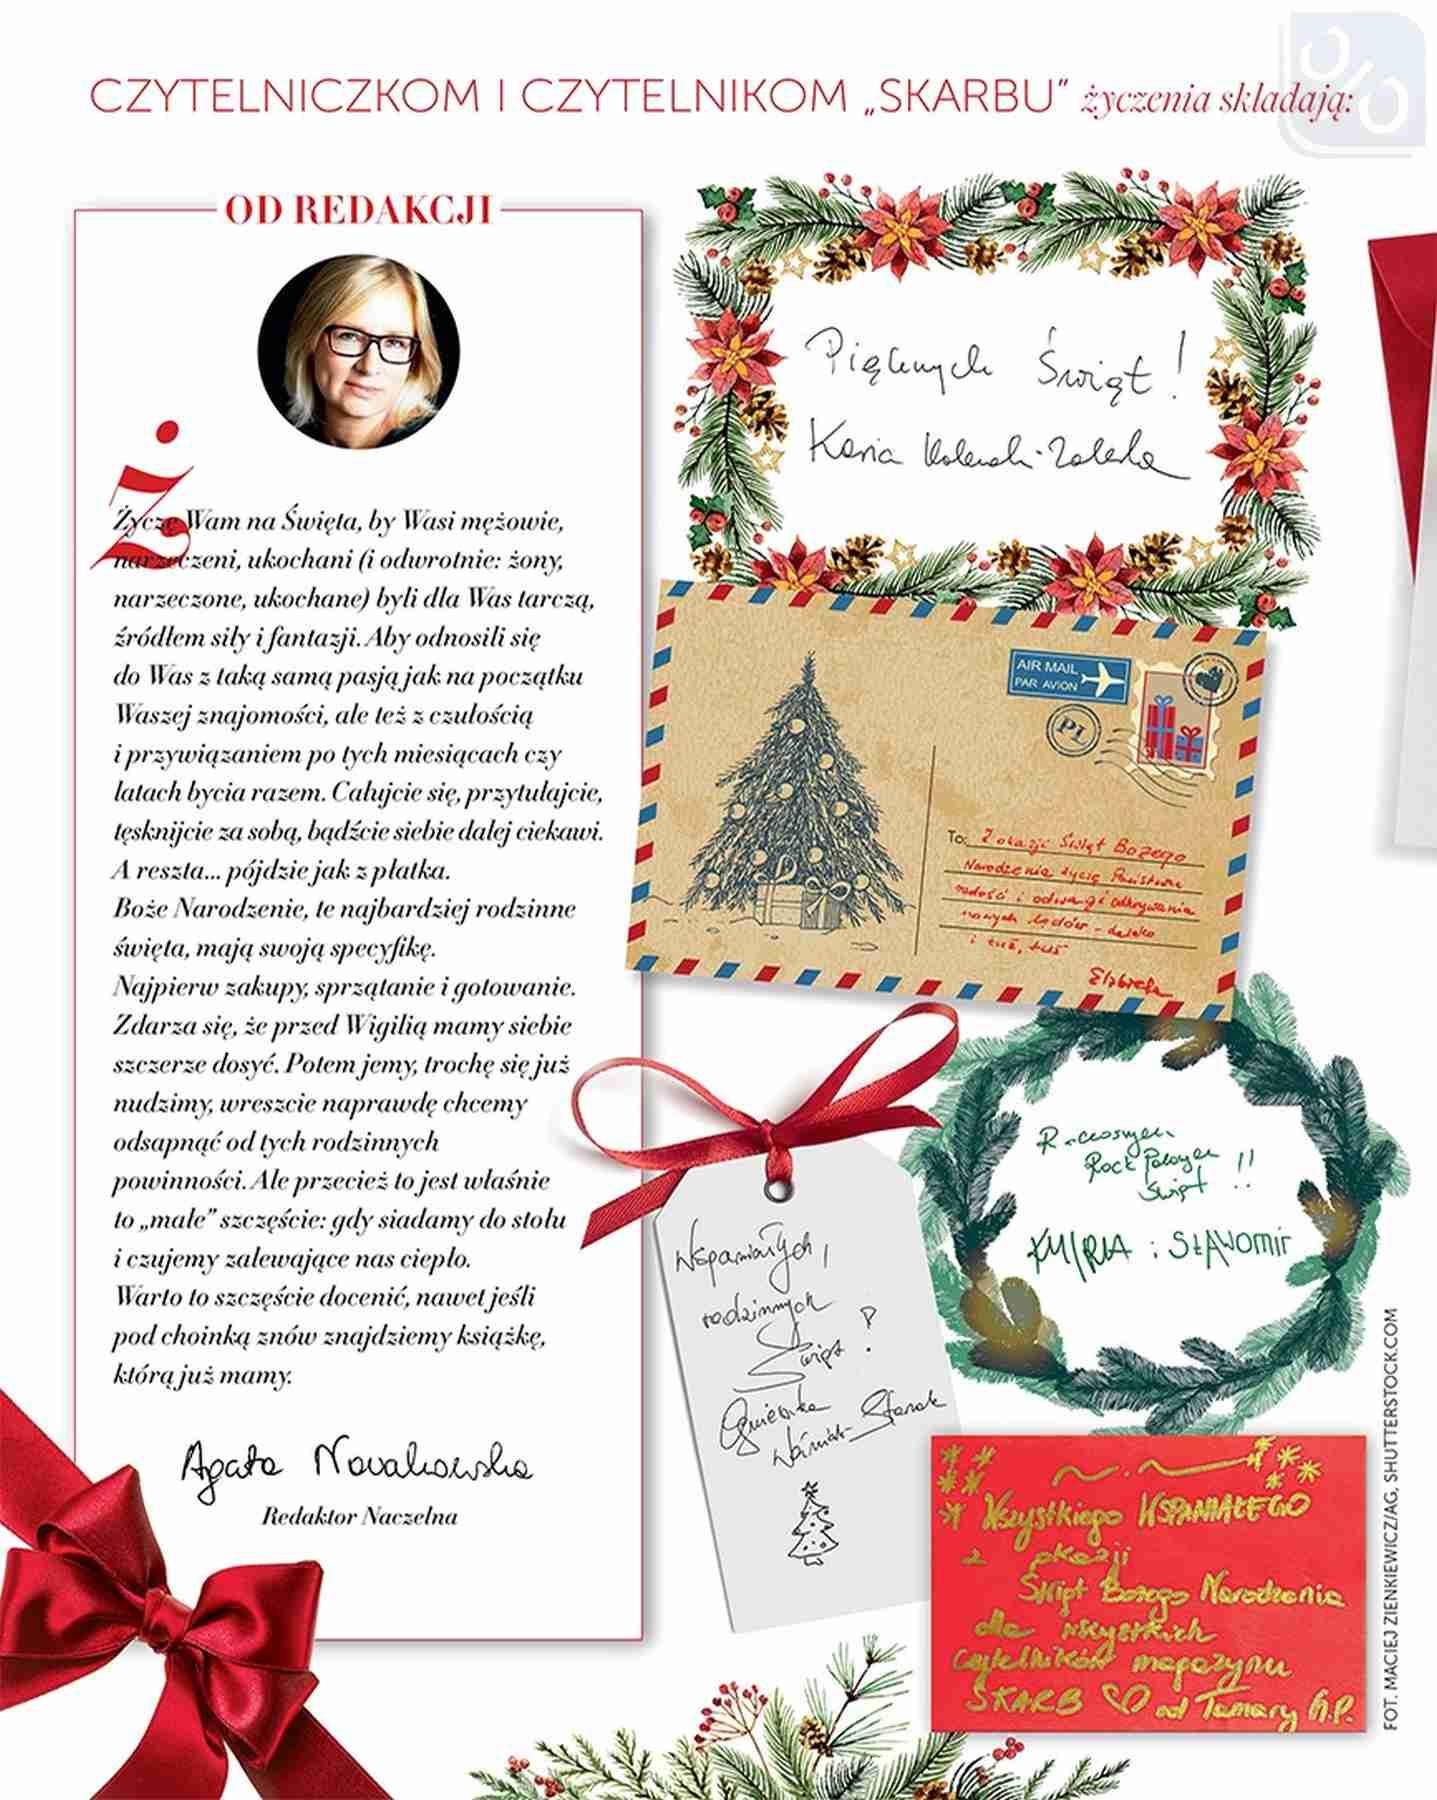 CZYTELNICZKOM I CZYTELNIKOM „SKARBU” życzenia składają:
OD REDAKCJI
Ż
Życzę Wam na Święta, by Wasi mężowie,
narzeczeni, ukochani (i odwrotnie: żony,
narzeczone, ukochane) byli dla Was tarczą,
źródłem siły i fantazji. Aby odnosili się
do Was z taką samą pasją jak na początku
Waszej znajomości, ale też z czułością
i przywiązaniem po tych miesiącach czy
latach bycia razem. Całujcie się, przytulajcie,
tęsknijcie za sobą, bądźcie siebie dalej ciekawi.
A reszta... pójdzie jak z płatka.
Boże Narodzenie, te najbardziej rodzinne
święta, mają swoją specyfikę.
Najpierw zakupy, sprzątanie i gotowanie.
Zdarza się, że przed Wigilią mamy siebie
szczerze dosyć. Potem jemy, trochę się już
nudzimy, wreszcie naprawdę chcemy
odsapnąć od tych rodzinnych
powinności. Ale przecież to jest właśnie
to „małe” szczęście: gdy siadamy do stołu
i czujemy zalewające nas ciepło.
Warto to szczęście docenić, nawet jeśli
pod choinką znów znajdziemy książkę,
którą już mamy.
Agata Novakowska
Redaktor Naczelna
Pięknych Świąt!
Kasia
AIR MAIL
PAR AVION
To: Z okazji Świąt Bożego
Narodzenia życzę Państwu
radości i odwagi odkrywania
nowych lądów - daleko
i tuż, tuż
Elżbieta
Roztańczonych
Rock Polowych
Świąt !!
KAJRA i SŁAWOMIR
Wspaniałych,
rodzinnych
Świąt!
Agnieszka
Woźniak-Starak
Wszystkiego WSPANIAŁEGO
z okazji
Świąt Bożego Narodzenia
dla wszystkich
czytelników magazynu
SKARB od Tamary A.P.
FOT. MACIEJ ZIENKIEWICZ/AG, SHUTTERSTOCK.COM